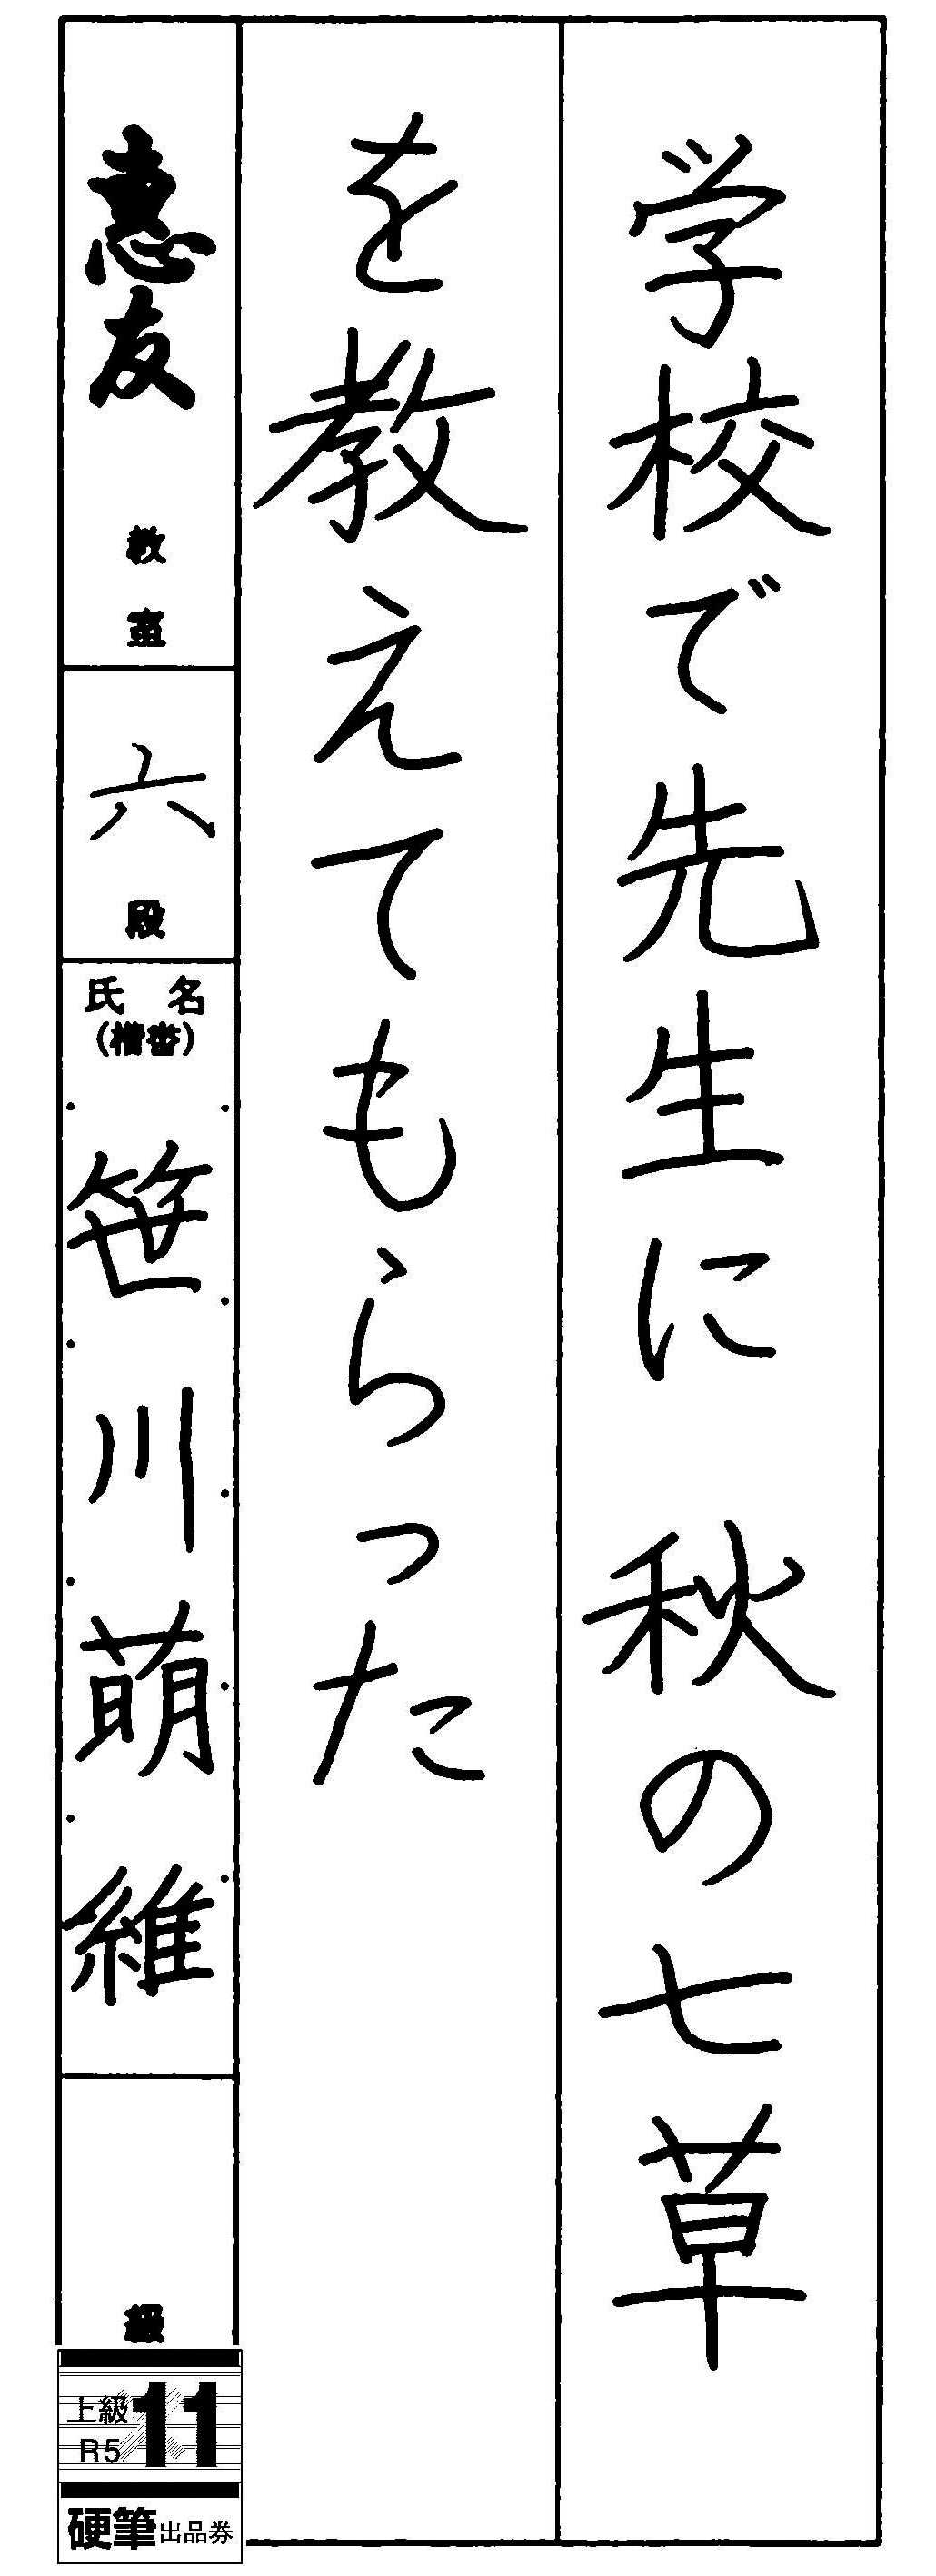 学校で先生に 秋の七草
を教えてもらった
恵友
教室
六
段
氏名
(楷書)
笹川萌維
級
上級
R5
11
硬筆出品券